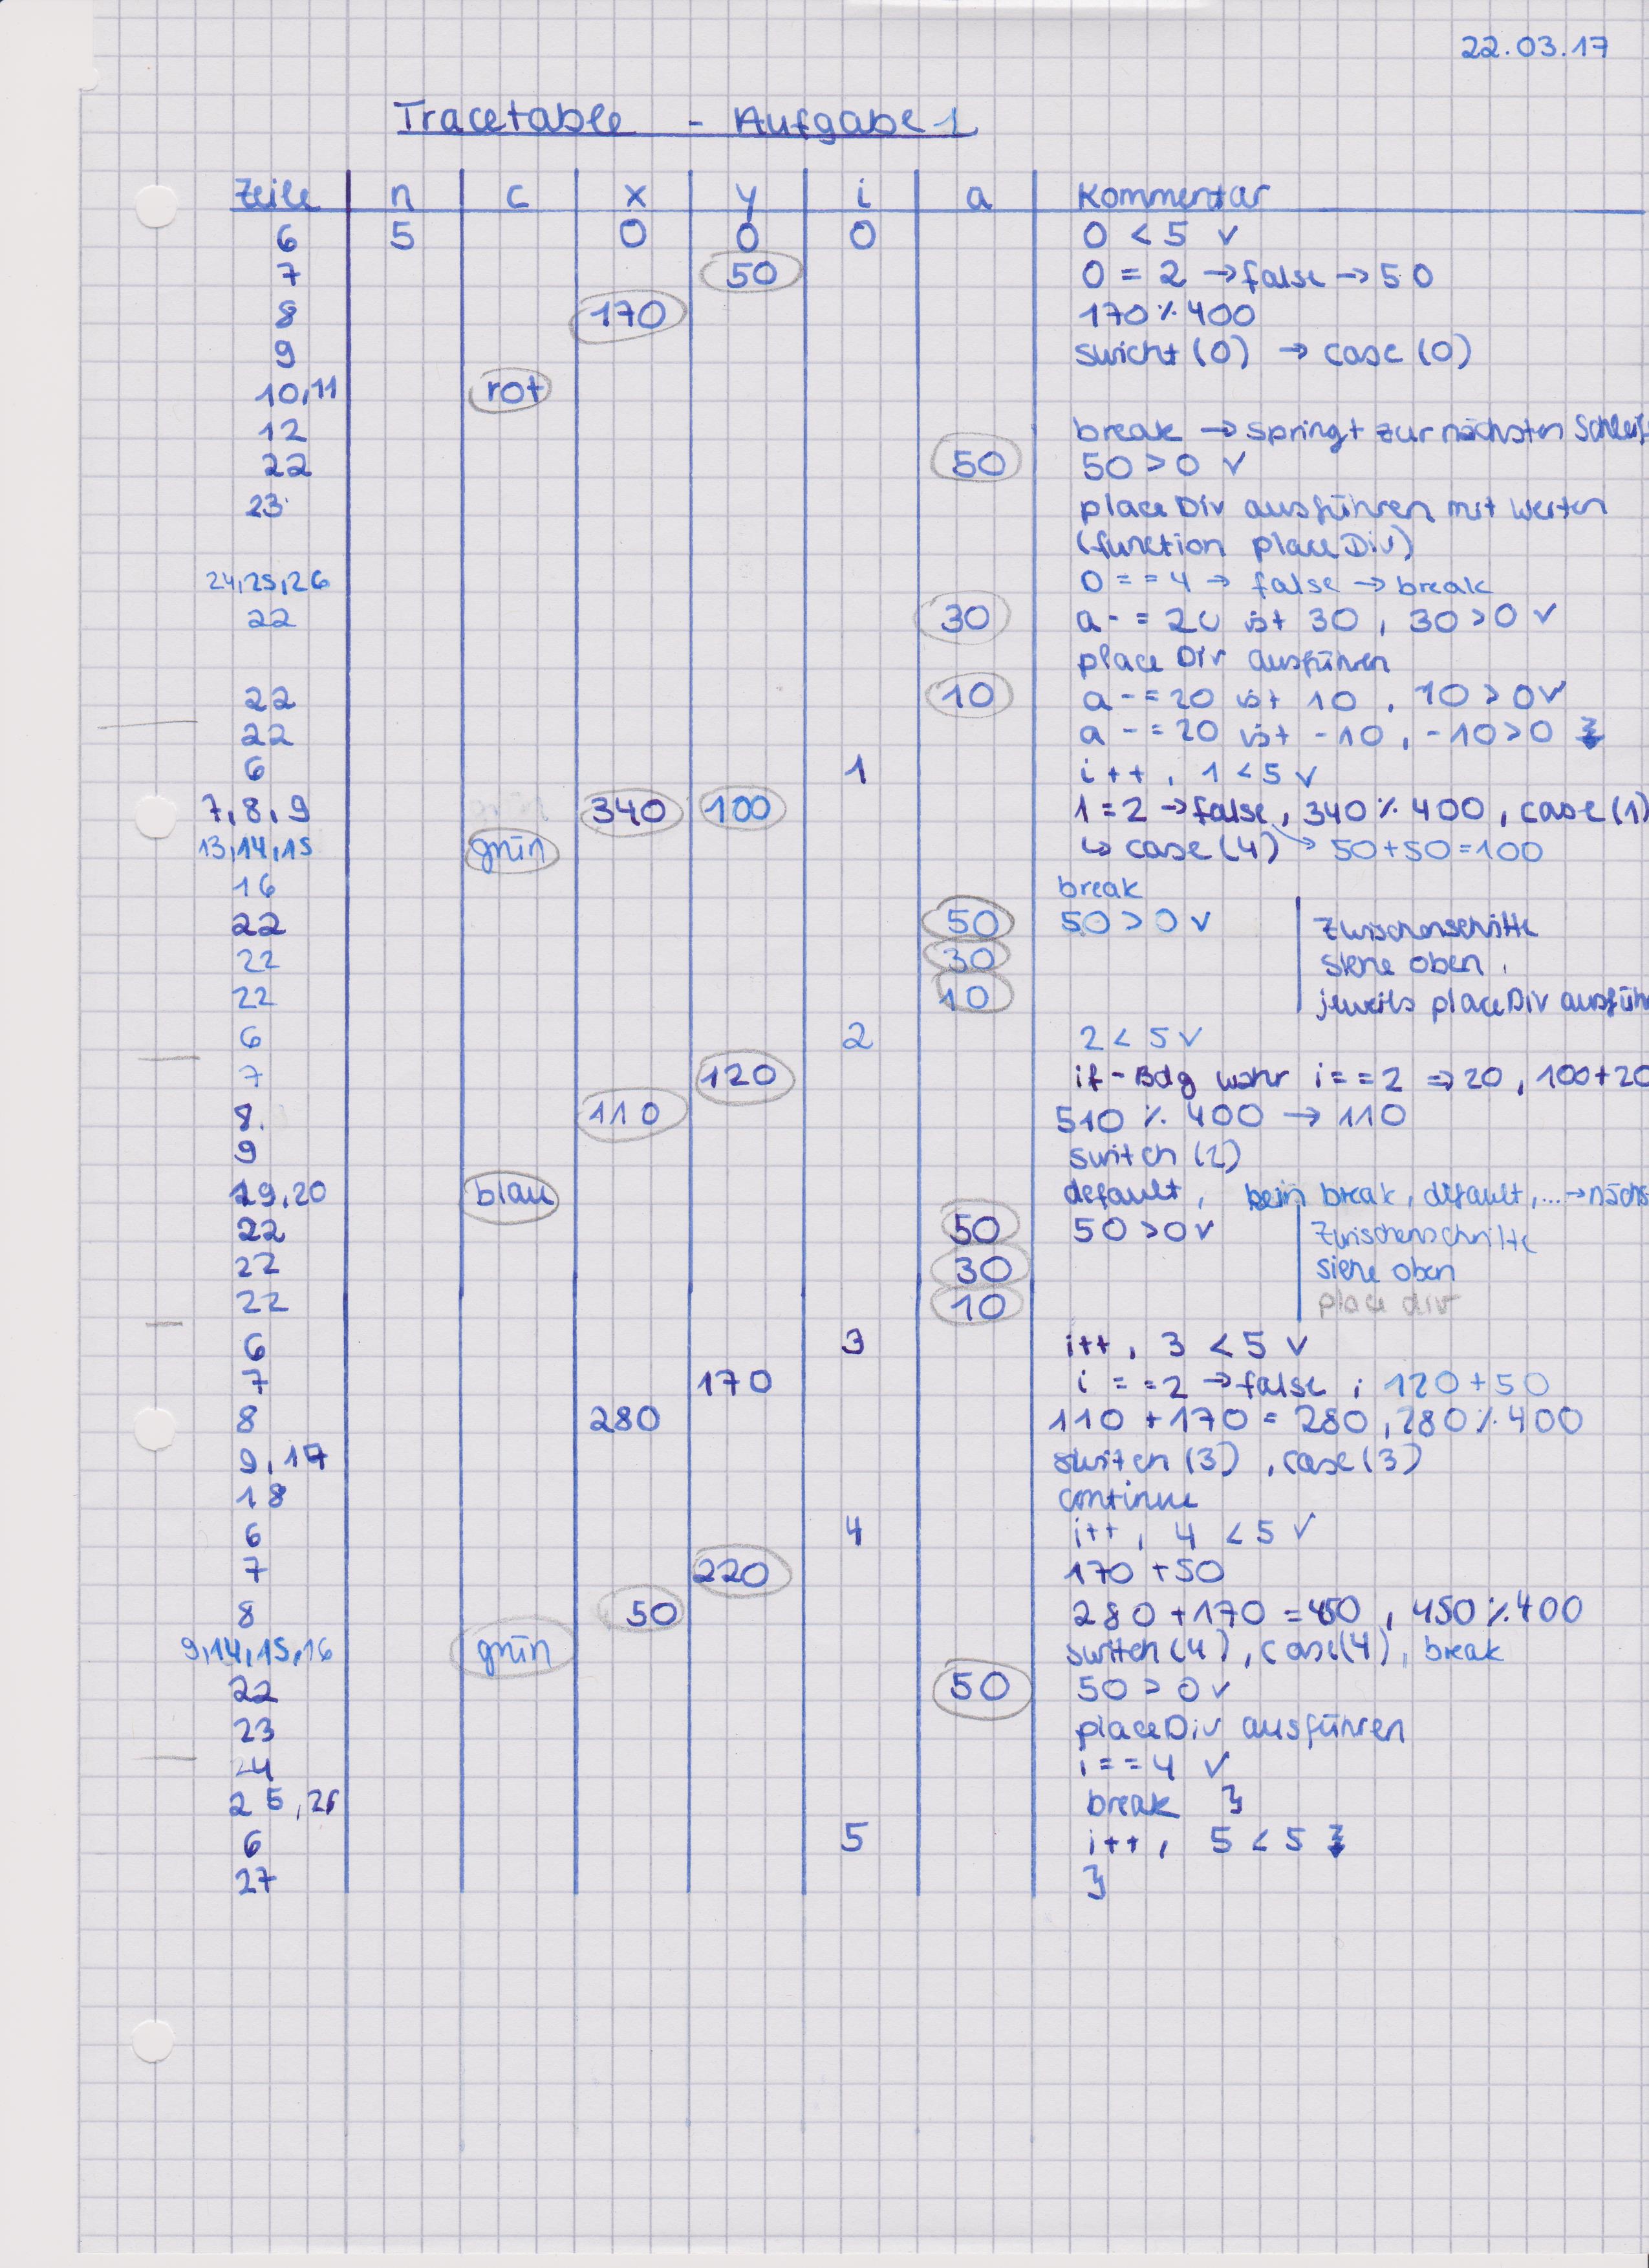 22.03.17
Tracetable - Aufgabe 1
Zeile n c x y i a Kommentar
6 5 0 0 0 0 < 5 ✓
7 50 0 = 2 → false → 50
8 170 170 % 400
9 swicht (0) → case (0)
10,11 rot
12 break → springt zur nächsten Schleif
22 50 50 > 0 ✓
23 place Div ausführen mit Werten
(function place Div)
24,25,26 0 == 4 → false → break
22 30 a -= 20 ist 30 , 30 > 0 ✓
place Div ausführen
22 10 a -= 20 ist 10 , 10 > 0 ✓
22 a -= 20 ist -10 , -10 > 0 ↯
6 1 i++ , 1 < 5 ✓
7,8,9 340 100 1 = 2 → false , 340 % 400 , case (1)
13,14,15 grün ↳ case (4) → 50 + 50 = 100
16 break
22 50 50 > 0 ✓ Zwischenschritte
22 30 siehe oben ,
22 10 jeweils placeDiv ausfüh
6 2 2 < 5 ✓
7 120 if-Bdg wahr i == 2 ⇒ 20 , 100+20
8. 110 510 % 400 → 110
9 switch (2)
19,20 blau default , beim break, default, ... → nächs
22 50 50 > 0 ✓ Zwischenschritte
22 30 siehe oben
22 10 place div
6 3 i++ , 3 < 5 ✓
7 170 i == 2 → false ; 120 + 50
8 280 110 + 170 = 280 , 280 % 400
9,17 switch (3) , case (3)
18 continue
6 4 i++ , 4 < 5 ✓
7 220 170 + 50
8 50 280 + 170 = 450 , 450 % 400
9,14,15,16 grün switch (4) , case (4) , break
22 50 50 > 0 ✓
23 placeDiv ausführen
24 i == 4 ✓
25,26 break }
6 5 i++ , 5 < 5 ↯
27 }